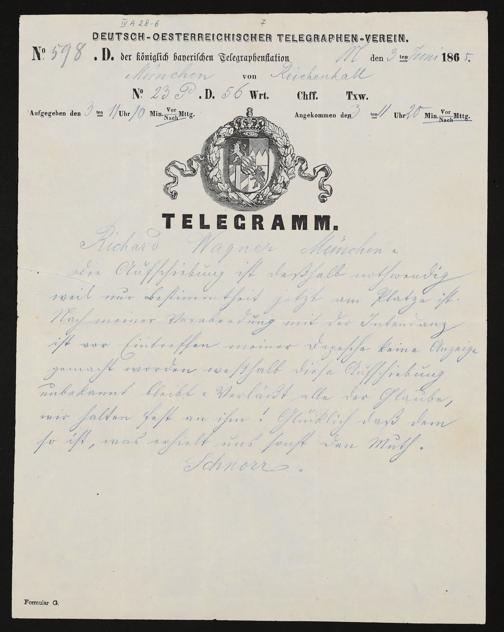 IV A 28-6 7
DEUTSCH-OESTERREICHISCHER TELEGRAPHEN-VEREIN.
No. 598. D. der königlich bayerischen Telegraphenstation M den 3ten Juni 1865.
München von Reichenhall
No 23 P. D. 56 Wrt. Chff. Txw.
Aufgegeben den 3 ten 11 Uhr 10 Min. Vor/Nach Mttg. Angekommen den 3 ten 11 Uhr 20 Min. Vor/Nach Mttg.
TELEGRAMM.
Richard Wagner München.
die Aufschiebung ist deßhalb nothwendig
weil nur Bestimmtheit jetzt am Platze ist.
Nach meiner Verabredung mit der Intendanz
ist vor Eintreffen meiner Depesche keine Anzeige
gemacht worden weßhalb diese Aufschiebung
unbekannt bleibt. Verläßt alle der Glaube,
wir halten fest an ihm! Glücklich daß dem
so ist, was erhielt uns sonst den Muth.
Schnorr.
Formular G.